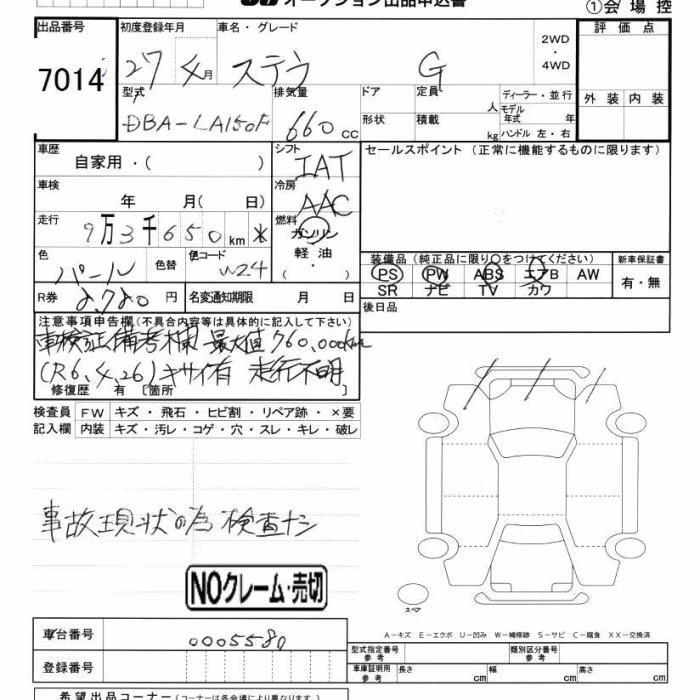 オークション出品申込書
①会場控
出品番号 初度登録年月 車名・グレード 評価点
7014 27 4月 ステラ G 2WD・4WD
型式 排気量 ドア 定員 人 ディーラー・並行 外装 内装
DBA-LA150F 660cc 形状 積載 kg モデル年式 年
ハンドル 左・右
車歴 シフト セールスポイント(正常に機能するものに限ります)
自家用・( ) IAT
車検 年 月( 日) 冷房 AAC
走行 9万3千650km 燃料 ガソリン
軽油
( ・ )
色 パール 色替 色コード W24
装備品(純正品に限り○をつけてください) 新車保証書
PS PW ABS エアB AW 有・無
SR ナビ TV カワ
R券 円 名変通知期限 月 日 後日品
注意事項申告欄(不具合内容等は具体的に記入して下さい)
車検証備考欄 最大値760,000km
(R6,4,26)キサイ有 走行不明
修復歴 有〔箇所 〕
検査員 FW キズ・飛石・ヒビ割・リペア跡・×要
記入欄 内装 キズ・汚レ・コゲ・穴・スレ・キレ・破レ
事故現状の為検査ナシ
NOクレーム・売切
スペア
A-キズ E-エクボ U-凹み W-補修跡 S-サビ C-腐食 XX-交換済
車台番号 0005580
型式指定番号 参考 類別区分番号 参考
登録番号
車庫証明用 参考 長さ cm 幅 cm 高さ cm
希望出品コーナー(コーナーは各会場により異なります。)